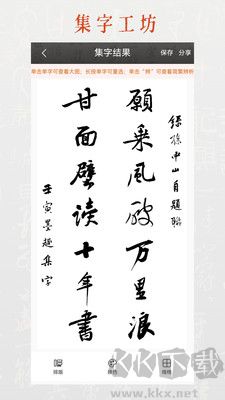 集字工坊
集字结果
保存 分享
单击单字可查看大图，长按单字可重选，单击“辨”可查看简繁辨析
錄孫中山自題聯
願乘風破万里浪
甘面壁读十年書
壬寅墨趣集字
排版
KK下载
www.kkx.net